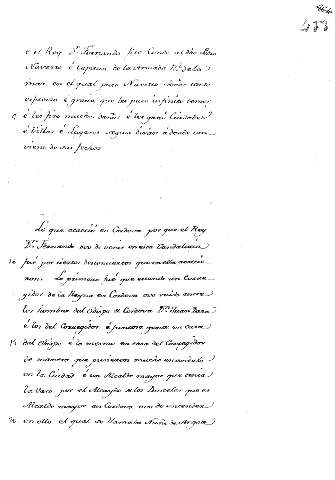 e el Rey Dn. Fernando fizo Conde al dho Pedro
Navarro e Capitan de la Armada Rl. de la
mar en el qual puso Nuestro Señor tanto
esfuerzo e gracia que les puso infinito temor
e les fizo muchos daños e les ganó Ciudades
é Villas e Lugares segun diran adonde con
viene de sus fechos
Lo que acaeció en Cordova por que el Rey
Dn. Fernando ovo de venir en esta Vandalucia
fué por ciertos desconciertos que en ella acaecie
ron. Lo primero fué que estando un Corre
gidor de la Reyna en Cordova ovo ruido entre
los hombres del Obispo de Cordova Dn. Juan Daza
é los del Corregidor é fueron gente en casa
del Obispo é lo mesmo en casa del Corregidor
de manera que pusieron mucho escandalo
en la Ciudad é un Alcalde mayor que tenia
la Vara por el Alcayde de los Donceles que es
Alcalde mayor en Cordova ovo de entender
en ello el qual se llamaba Nuño de Argote